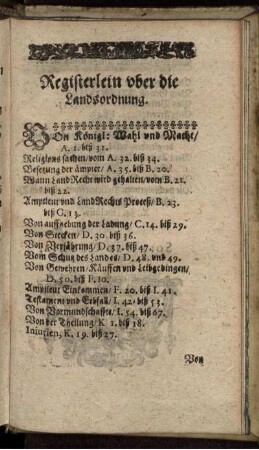 Registerlein vber die
Landsordnung.
VOn Königl: Wahl vnd Macht/
A. 1. biß 31.
Religions sachen/vom A. 32. biß 34.
Besetzung der ämpter/ A. 35. biß B. 20.
Wann Land Recht wird gehalten/vom B. 21.
biß 22.
Amptleut vnd Land Rechts Proceß/ B. 23.
biß C. 13.
Von auffhebung der Ladung/ C. 14. biß 29.
Von Stecken/ D. 30. biß 36.
Von Verjährung/ D. 37. biß 47.
Vom Schutz des Landes/ D. 48. vnd 49.
Von Gewehren/ Käuffen vnd Leibgedingen/
D. 50. biß F. 10.
Amptleut Einkommen/ F. 20. biß I. 41.
Testament vnd Erbfall/ I. 42. biß 53.
Von Vormundschafft/ I. 54. biß 67.
Von der Theilung/ K 1. biß 18.
Iniurien, K. 19. biß 27.
Von